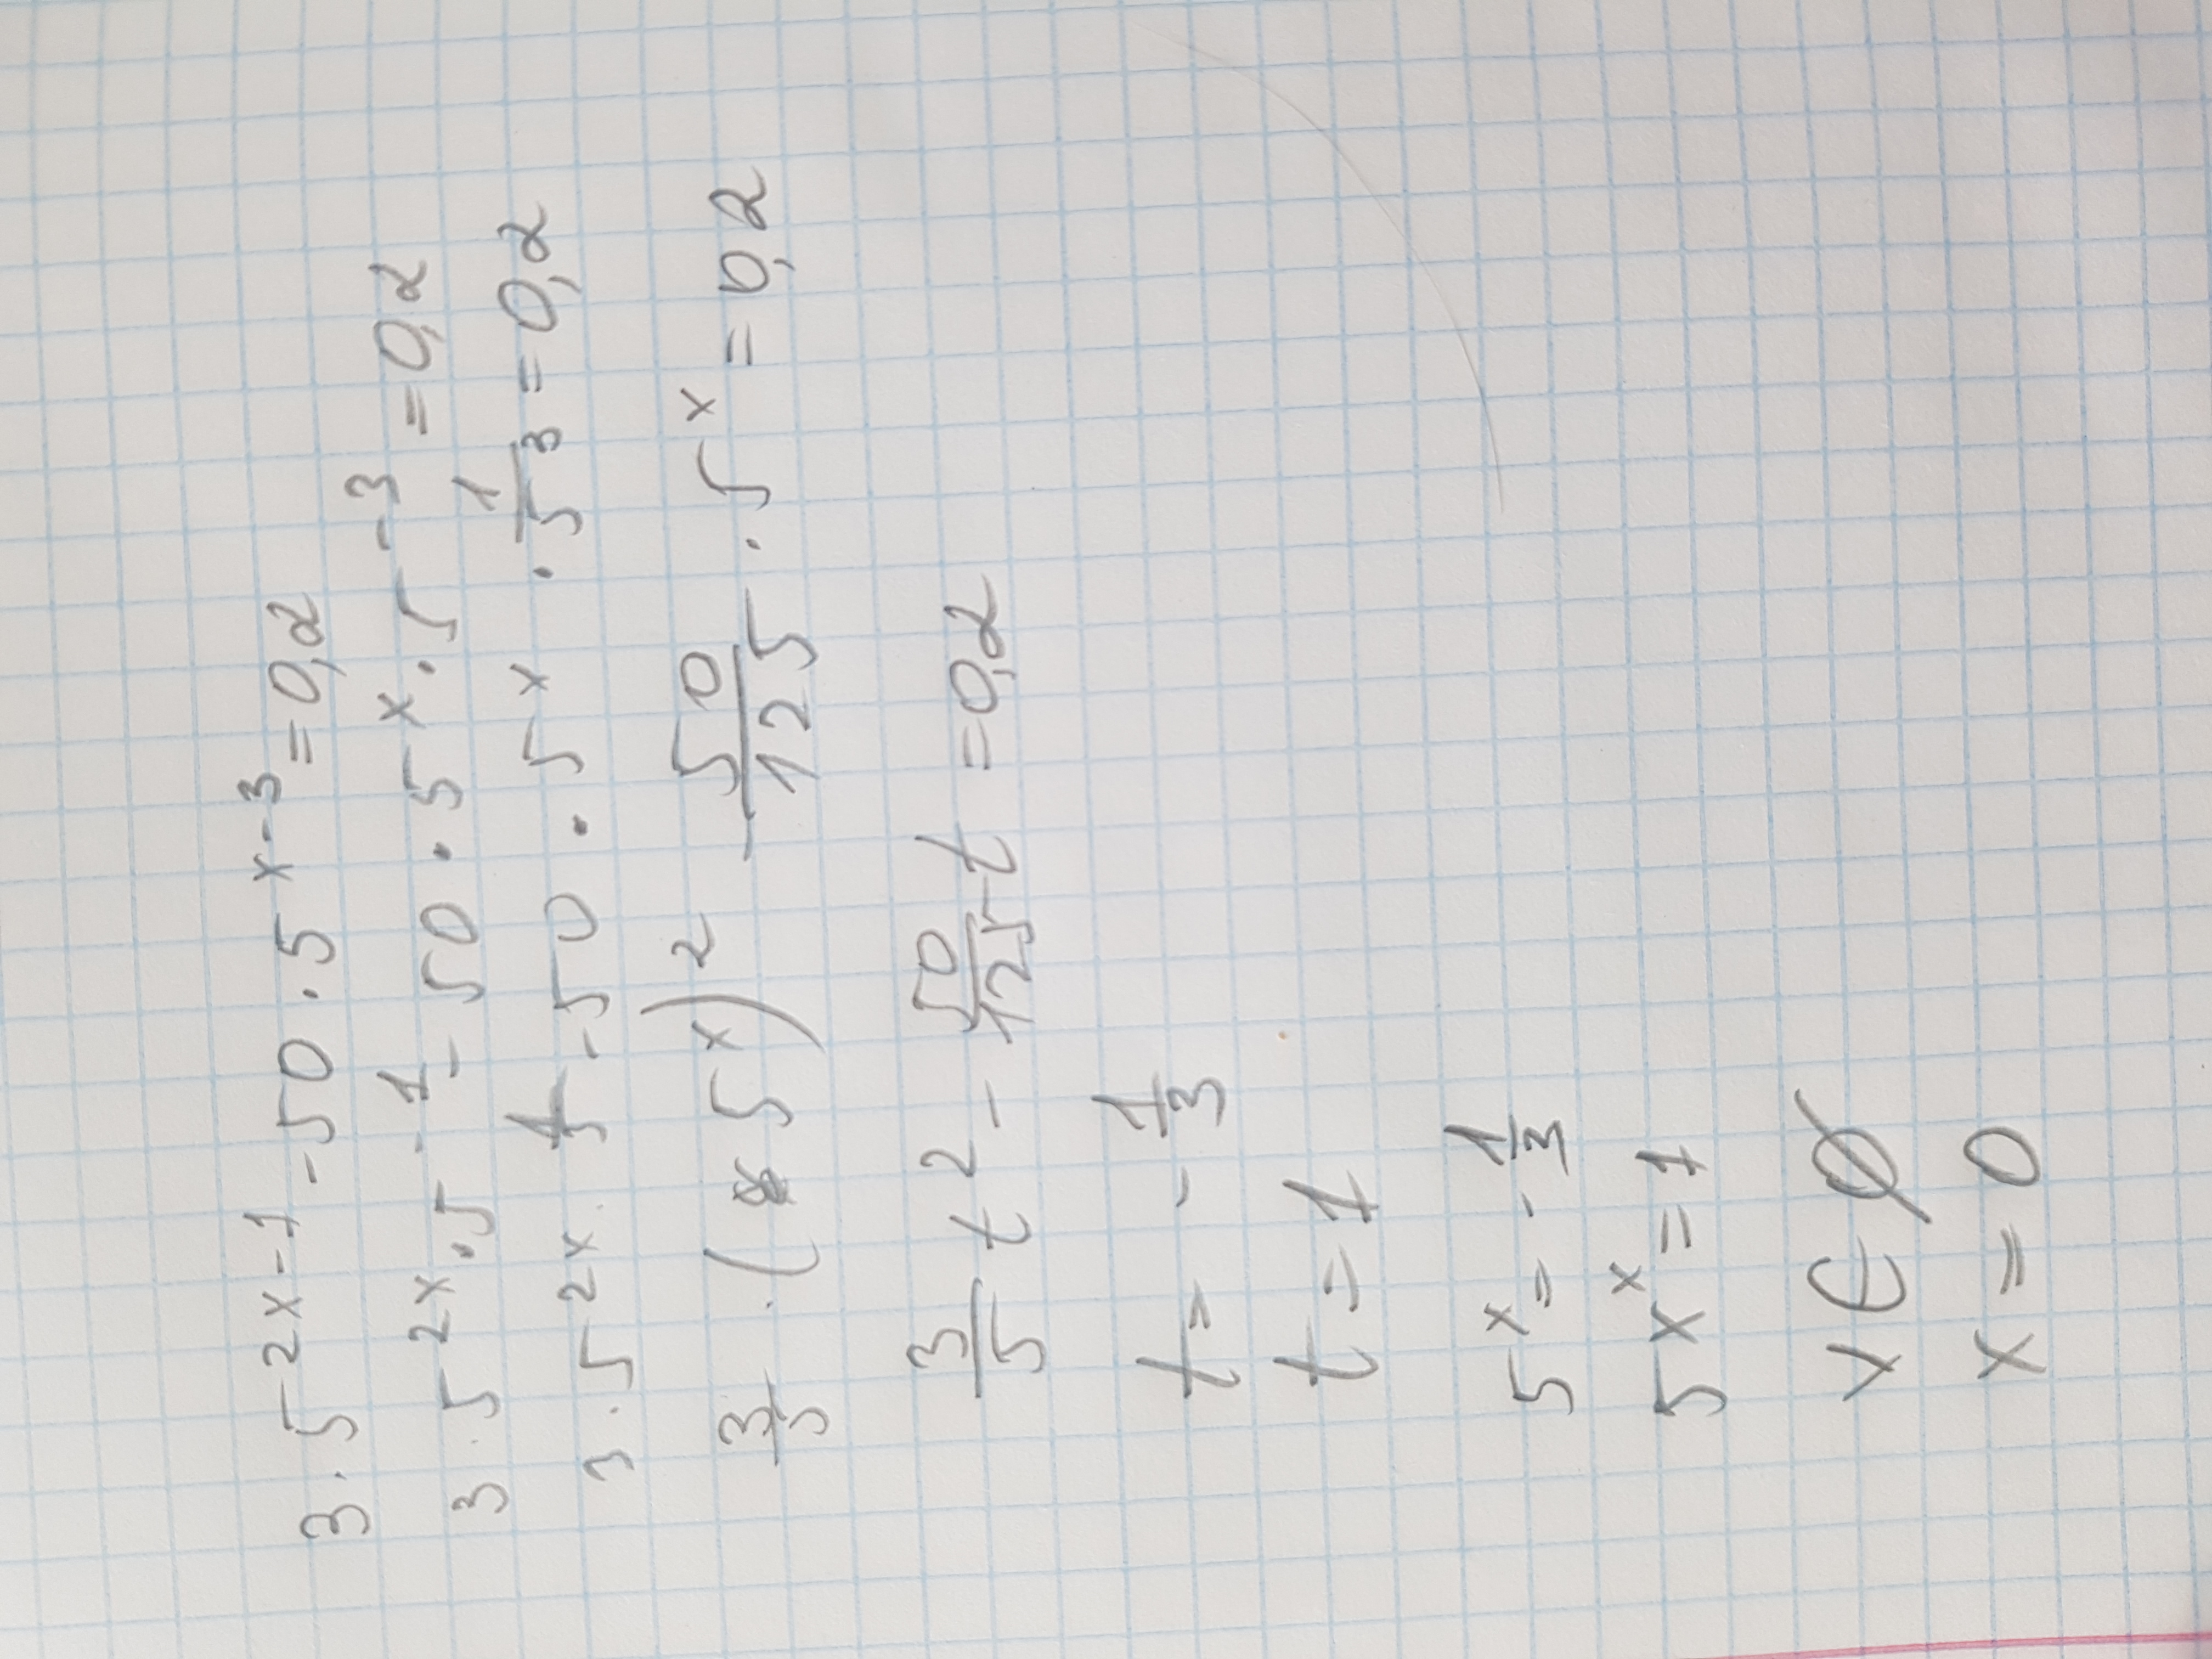 3 · 5^{2x-1} - 50 · 5^{x-3} = 0,2
3 · 5^{2x} · 5^{-1} - 50 · 5^x · 5^{-3} = 0,2
3 · 5^{2x} · - 50 · 5^x · \frac{1}{5}^3 = 0,2
\frac{3}{5} · (5^x)^2 - \frac{50}{125} · 5^x = 0,2
\frac{3}{5} t^2 - \frac{50}{125} t = 0,2
t = -\frac{1}{3}
t = 1
5^x = -\frac{1}{3}
5x^x = 1
x ∈ ∅
x = 0